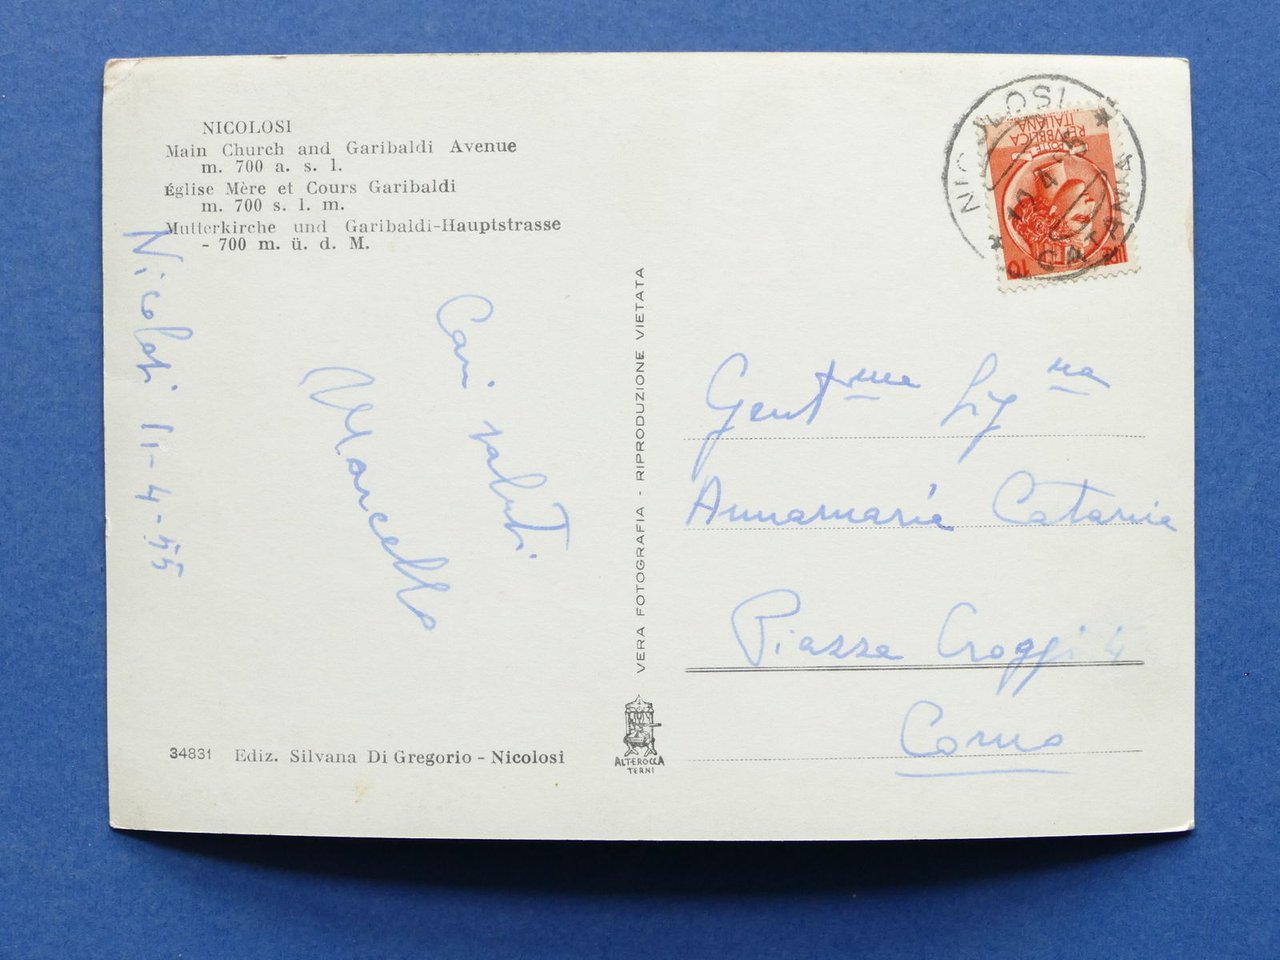 NICOLOSI
Main Church and Garibaldi Avenue
m. 700 a. s. l.
Église Mère et Cours Garibaldi
m. 700 s. l. m.
Mutterkirche und Garibaldi-Hauptstrasse
- 700 m. ü. d. M.
Nicolosi 11-4-55
Cari saluti
Marcello
34831 Ediz. Silvana Di Gregorio - Nicolosi
VERA FOTOGRAFIA - RIPRODUZIONE VIETATA
ALTEROCCA
TERNI
NICOLOSI
CATANIA
POSTE
REPVBBLICA
ITALIANA
LIRE 10
Gentma Signa
Annamaria Catania
Piazza
Como